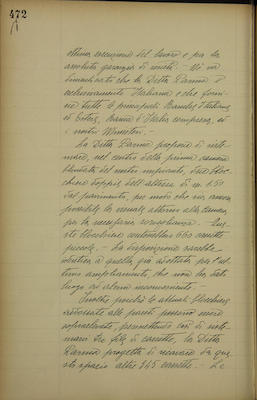 472
ottima esecuzione del lavoro e per la
assoluta garanzia di
dimenticato che la Ditta Parma è
esclusivamente Italiana e che forni-
sce tutte le principali Banche d'Italia,
ed Estere, Banca d'Italia compresa, ed
i vostri Ministeri. -
La Ditta Parma propone di siste-
mare, nel centro della prima camera
blindata del nostro impianto, due bloc-
chiere doppie dell'altezza di m. 1.50
dal pavimento, per modo che sia ancora
possibile la visuale attorno alla camera,
per la necessaria sorveglianza. -
ste blocchiere conterebbero 660 cassette
piccole. - La disposizione sarebbe
identica a quella già adottata per
ampliamento, che non ha dato
luogo ad alcun inconveniente. -
Inoltre poiché le attuali blocchiere
addossate alle pareti possono essere
sopraelevate, permettendo così di siste-
marvi tre file di cassette, la Ditta
Parma progetta di ricavare da que-
sto spazio altre 345 cassette. - Le